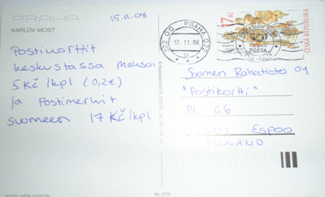 PRAHA
KARLŮV MOST
15.11.08
Postikortit
keskustassa maksoi
5Kč/kpl (0,2€)
ja Postimerkit
suomeen 17 Kč/kpl
PRAHA 022
17.11.08
17 Kč
POSTA
ČESKÁ REPUBLIKA
Suomen Rahatieto Oy
"Postikortti"
PL 66
Espoo
FINLAND